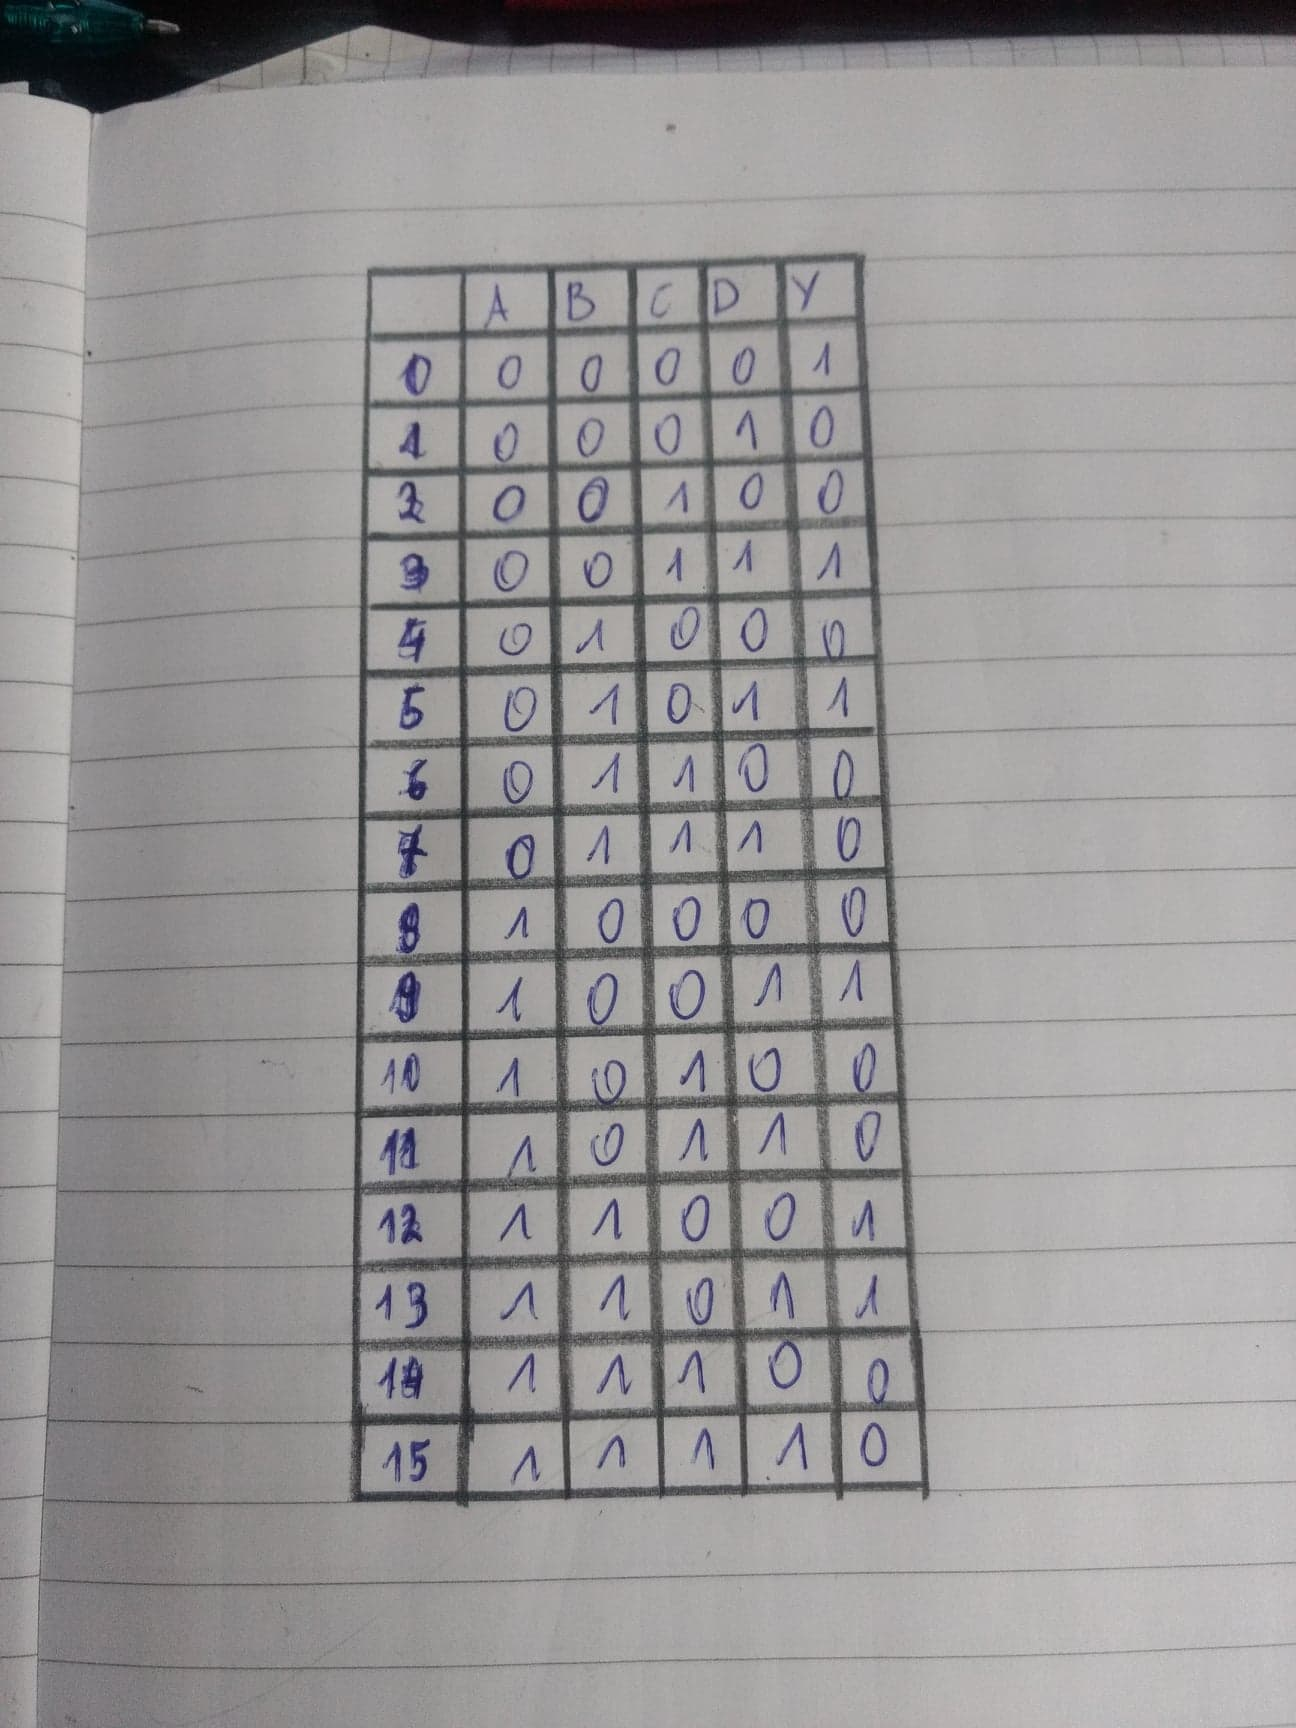 A B C D Y
0 0 0 0 0 1
1 0 0 0 1 0
2 0 0 1 0 0
3 0 0 1 1 1
4 0 1 0 0 0
5 0 1 0 1 1
6 0 1 1 0 0
7 0 1 1 1 0
8 1 0 0 0 0
9 1 0 0 1 1
10 1 0 1 0 0
11 1 0 1 1 0
12 1 1 0 0 1
13 1 1 0 1 1
14 1 1 1 0 0
15 1 1 1 1 0